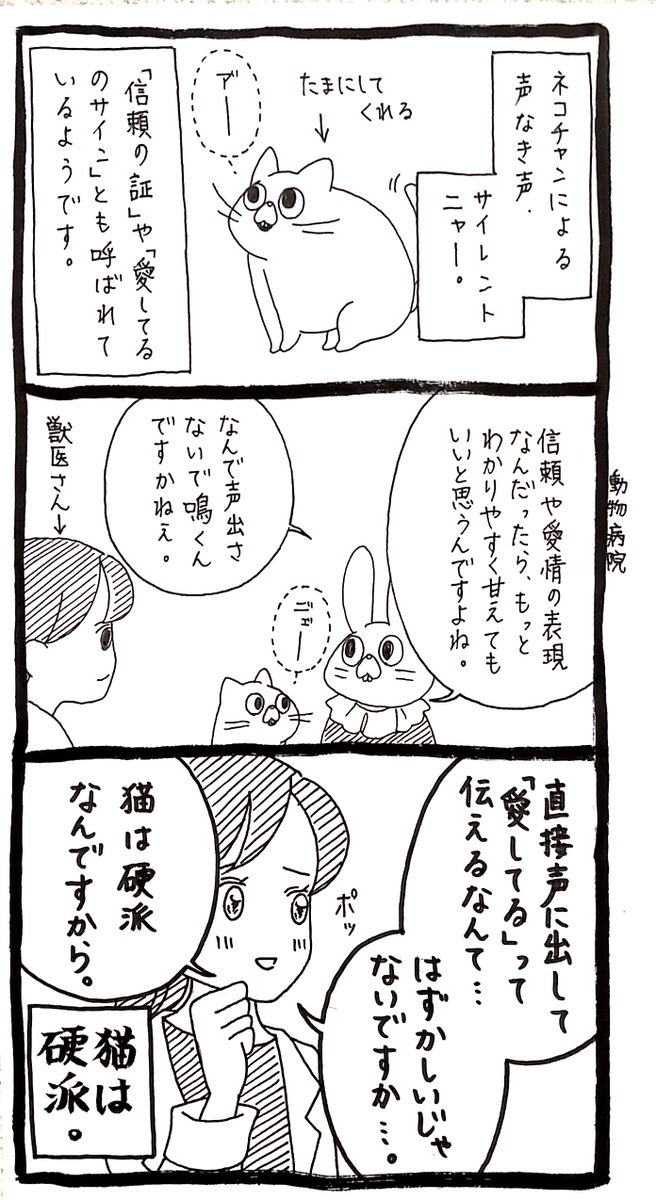 ネコチャンによる
声なき声.
サイレント
ニャー。
たまにして
くれる
ア゛ー
「信頼の証」や「愛してる
のサイン」とも呼ばれて
いるようです。
動物病院
信頼や愛情の表現
なんだったら、もっと
わかりやすく甘えても
いいと思うんですよね。
なんで声出さ
ないで鳴くん
ですかねぇ。
獣医さん
直接声に出して
「愛してる」って
伝えるなんて…
はずかしいじゃ
ないですか…。
ポッ
猫は硬派
なんですから。
猫は
硬派。